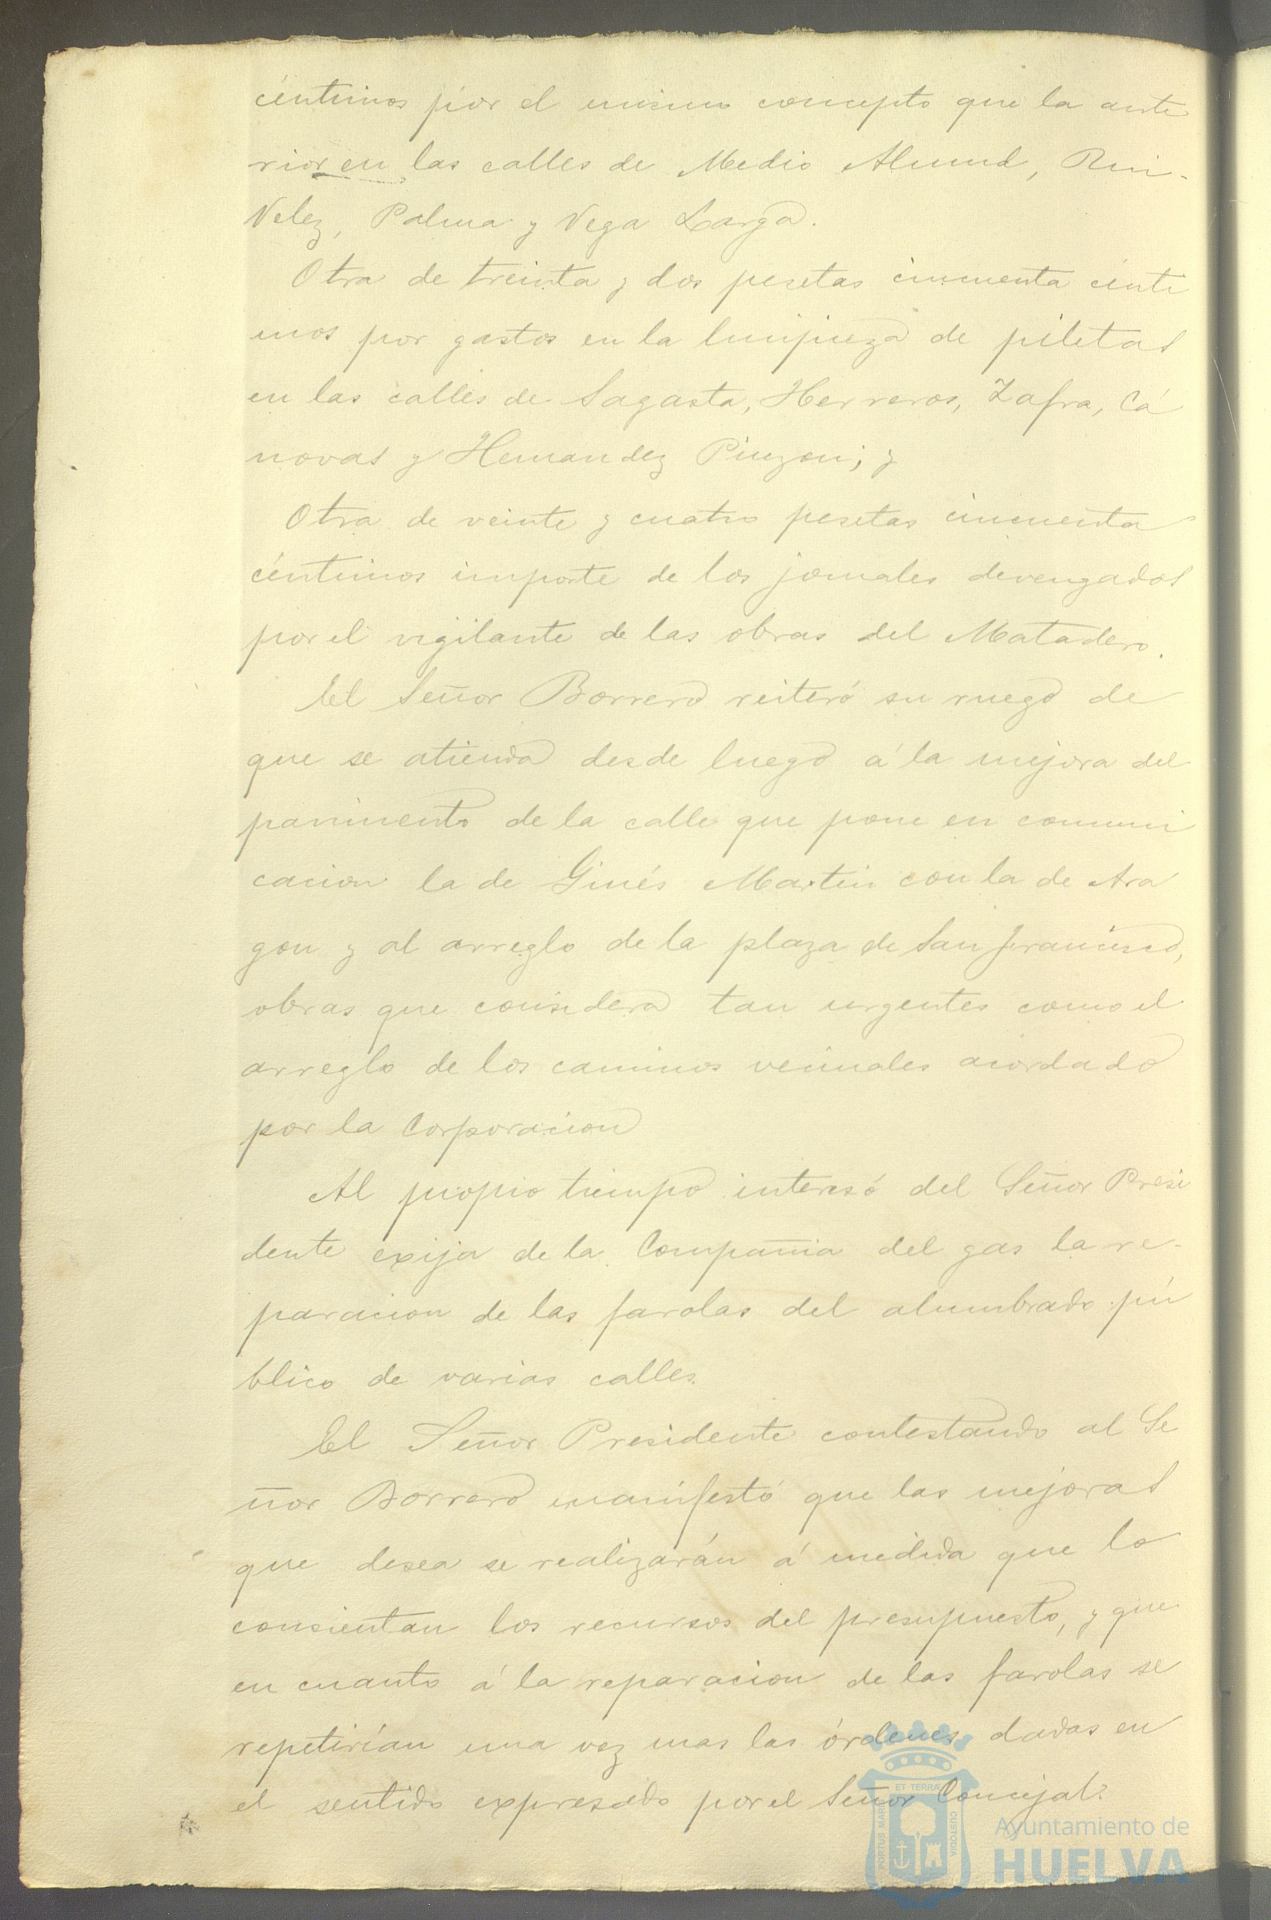 céntimos por el mismo concepto que la ante
rior en las calles de Medio Almud, Rui-
Velez, Palma y Vega Larga.
Otra de treinta y dos pesetas cincuenta cénti
mos por gastos en la limpieza de piletas
en las calles de Sagasta, Herreros, Zafra, Cá
novas y Hernandez Pinzon; y
Otra de veinte y cuatro pesetas cincuenta
céntimos importe de los jornales devengados
por el vigilante de las obras del Matadero.
El Señor Borrero reiteró su ruego de
que se atienda desde luego á la mejora del
pavimento de la calle que pone en comuni
cacion la de Ginés Martin con la de Ara
gon y al arreglo de la plaza de San Francisco,
obras que considera tan urgentes como el
arreglo de los caminos vecinales acordado
por la Corporacion
Al propio tiempo interesó del Señor Presi
dente exija de la Compañia del gas la re-
paracion de las farolas del alumbrado pú
blico de varias calles.
El Señor Presidente contestando al Se
ñor Borrero manifestó que las mejoras
que desea se realizarán á medida que lo
consientan los recursos del presupuesto, y que
en cuanto á la reparacion de las farolas se
repetirían una vez mas las órdenes dadas en
el sentido expresado por el Señor Concejal.
PORTUS MARIS ET TERRÆ CUSTODIA
Ayuntamiento de
HUELVA